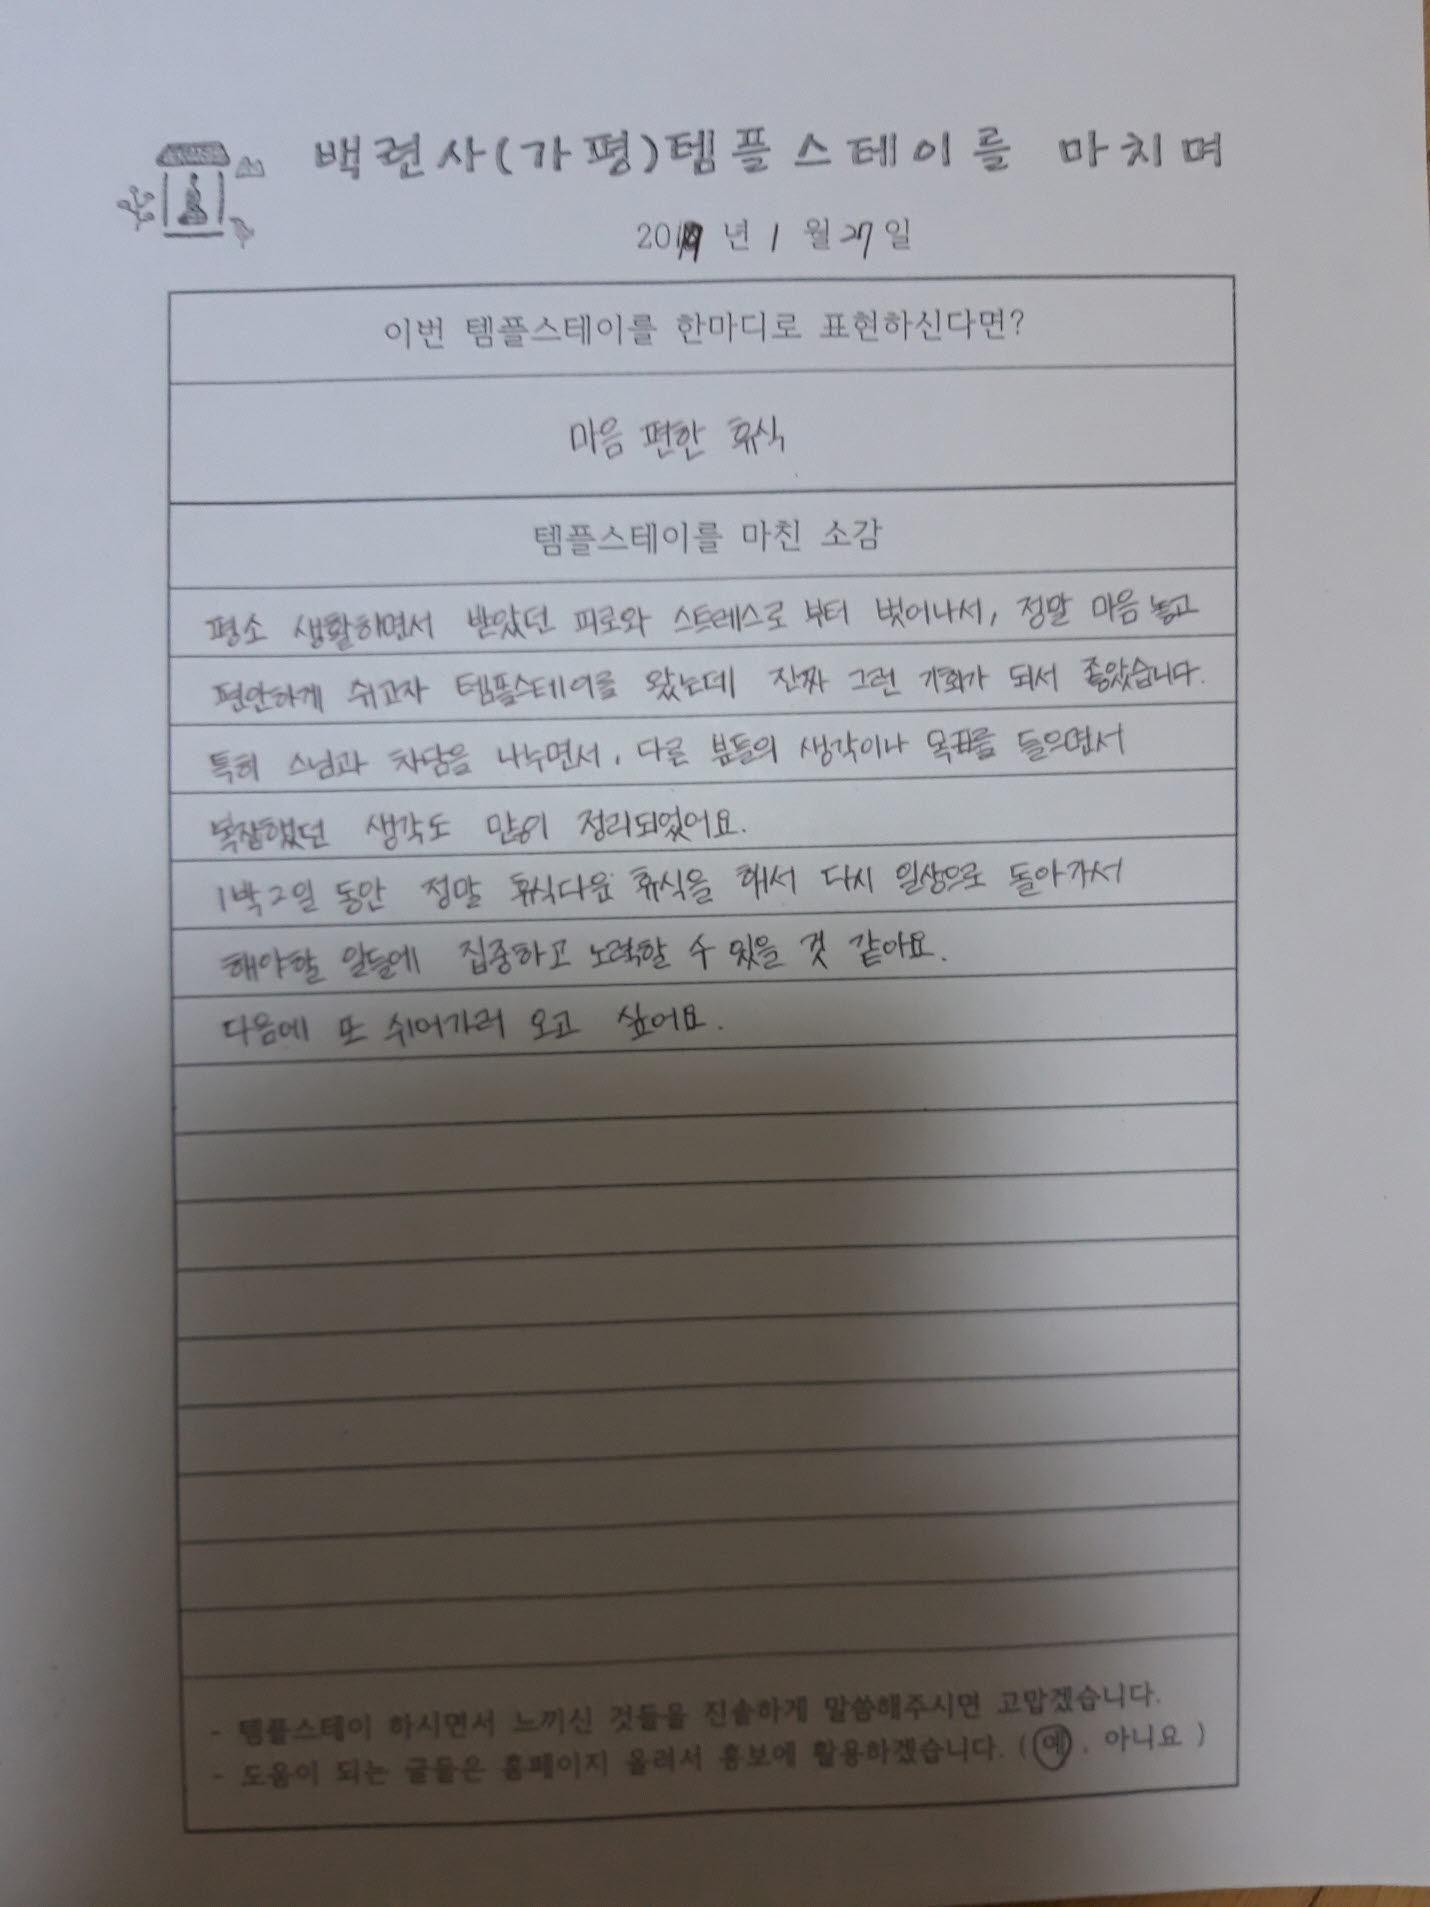 백련사(가평)템플스테이를 마치며
2019 년 1 월 27 일
이번 템플스테이를 한마디로 표현하신다면?
마음 편한 휴식
템플스테이를 마친 소감
평소 생활하면서 받았던 피로와 스트레스로 부터 벗어나서, 정말 마음 놓고
편안하게 쉬고자 템플스테이를 왔는데 진짜 그런 기회가 되서 좋았습니다.
특히 스님과 차담을 나누면서, 다른 분들의 생각이나 목표를 들으면서
복잡했던 생각도 많이 정리되었어요.
1박2일 동안 정말 휴식다운 휴식을 해서 다시 일상으로 돌아가서
해야할 일들에 집중하고 노력할 수 있을 것 같아요.
다음에 또 쉬어가러 오고 싶어요.
- 템플스테이 하시면서 느끼신 것들을 진솔하게 말씀해주시면 고맙겠습니다.
- 도움이 되는 글들은 홈페이지 올려서 홍보에 활용하겠습니다. ( 예 , 아니요 )